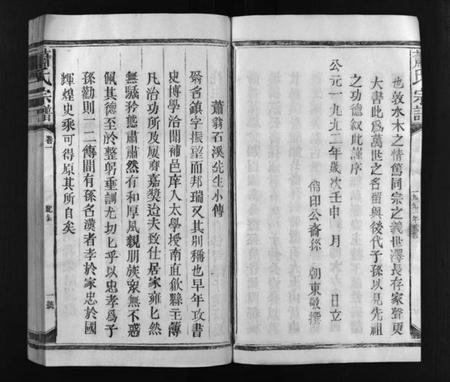 蕭氏宗譜
一九九二年
也敦水木之情篤同宗之義世澤長存家聲更
大書此爲萬世之名留與後代子孫以見先祖
之功德叙此謹序
公元一九九二年歲次壬申 月 日立
印公裔孫 朝東敬撰
蕭翁石溪先生小傳
翁諱鎮字振望而邦瑞又其別稱也早年攻書
史博學洽聞補邑庠人太學授南直歙縣主簿
凡治功所及屢奉嘉奬迨夫致仕居家雍匕然
無驕矜態肅肅然有和厚風親朋族眾無不感
佩其德至於整躬垂訓尤切匕乎以忠孝爲子
孫勸則一二傳間有孫名漢者孝於家忠於國
輝煌史乘可得原其所自矣
蕭氏宗譜
卷一
一